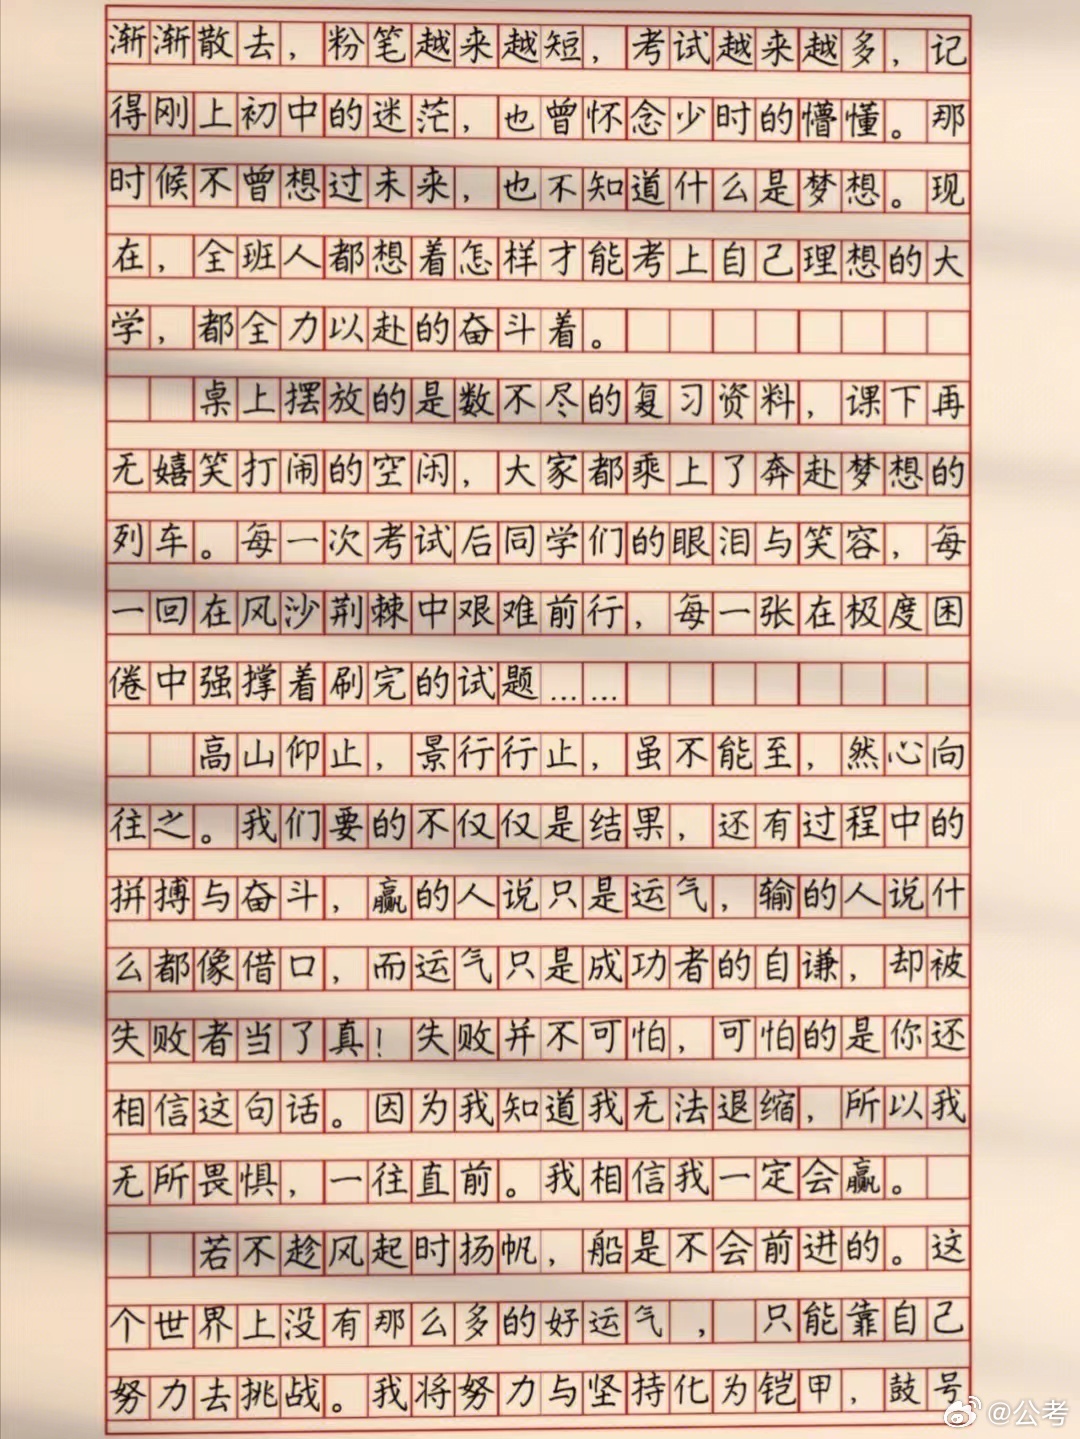 渐渐散去，粉笔越来越短，考试越来越多，记
得刚上初中的迷茫，也曾怀念少时的懵懂。那
时候不曾想过未来，也不知道什么是梦想。现
在，全班人都想着怎样才能考上自己理想的大
学，都全力以赴的奋斗着。
桌上摆放的是数不尽的复习资料，课下再
无嬉笑打闹的空闲，大家都乘上了奔赴梦想的
列车。每一次考试后同学们的眼泪与笑容，每
一回在风沙荆棘中艰难前行，每一张在极度困
倦中强撑着刷完的试题……
高山仰止，景行行止，虽不能至，然心向
往之。我们要的不仅仅是结果，还有过程中的
拼搏与奋斗，赢的人说只是运气，输的人说什
么都像借口，而运气只是成功者的自谦，却被
失败者当了真！失败并不可怕，可怕的是你还
相信这句话。因为我知道我无法退缩，所以我
无所畏惧，一往直前。我相信我一定会赢。
若不趁风起时扬帆，船是不会前进的。这
个世界上没有那么多的好运气，只能靠自己
努力去挑战。我将努力与坚持化为铠甲，鼓号
@公考